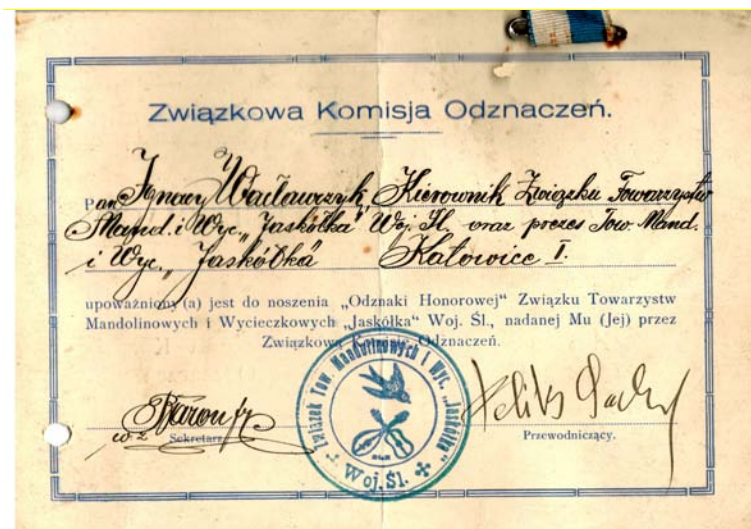 Związkowa Komisja Odznaczeń.
Pan Ignacy Wacławczyk, Kierownik Związku Towarzystw
Mand. i Wyc. „Jaskółka" Woj. Śl. oraz prezes Tow. Mand.
i Wyc. „Jaskółka" Katowice I.
upoważniony (a) jest do noszenia „Odznaki Honorowej" Związku Towarzystw
Mandolinowych i Wycieczkowych „Jaskółka" Woj. Śl., nadanej Mu (Jej) przez
Związkową Komisję Odznaczeń.
Związek Tow. Mandolinowych i Wyc. „Jaskółka"
Woj. Śl.
Feliks
w z Sekretarz
Przewodniczący.